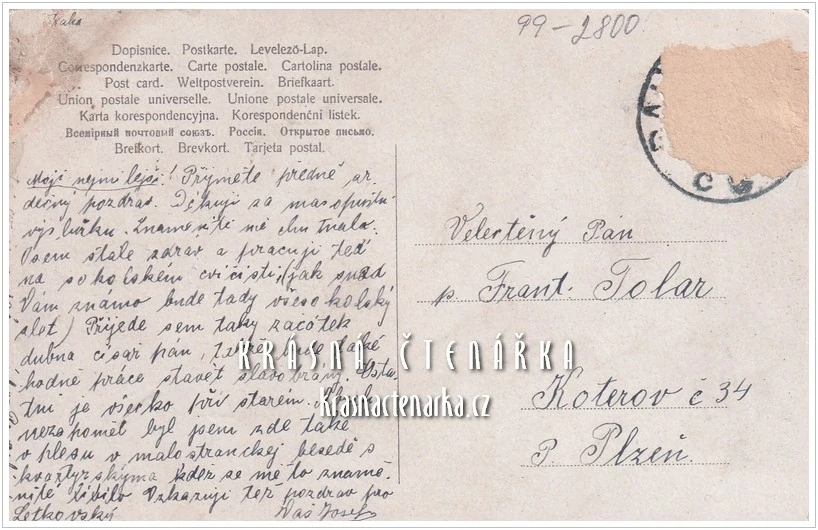 99-2800
Dopisnice. Postkarte. Levelező-Lap.
Correspondenzkarte. Carte postale. Cartolina postale.
Post card. Weltpostverein. Briefkaart.
Union postale universelle. Unione postale universale.
Karta korespondencyjna. Korespondenční lístek.
Всемірный почтовый союзъ. Россія. Открытое письмо.
Brefkort. Brevkort. Tarjeta postal.
Moji nejmilejší! Přijmete předně sr-
dečný pozdrav. Děkuji za masopustní
výslužku. Znamenitě mě chutnala.
Jsem stále zdráv a pracuji teď
na sokolském cvičišti, (jak snad
Vám známo bude tady všesokolský
slet) Přijede sem taky začátek
dubna císař pán, bude také
hodně práce stavět slavobrány. Osta-
tní je všecko při starém.
nezapoměl byl jsem zde také
v plesu v malostranckej besedě s
kvartýrskýma kdež se mě to zname-
nitě líbilo Vzkazuji též pozdrav pro
Letkovský Váš Josef
Velectěný Pán
p. Frant. Tolar
Koterov č 34
P. Plzeň
KRÁSNÁ ČTENÁŘKA
Krasnactenarka.cz